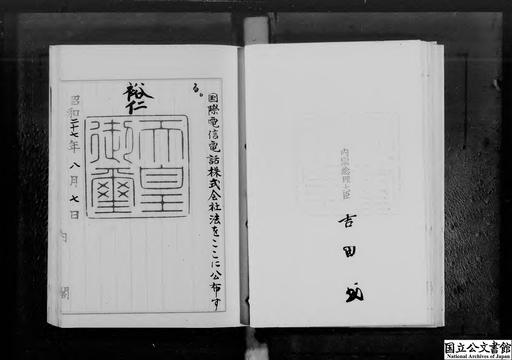 国際電信電話株式会社法をここに公布す
る。
裕仁
天皇
御璽
昭和二十七年八月七日
内閣
内閣総理大臣 吉田茂
国立公文書館
National Archives of Japan